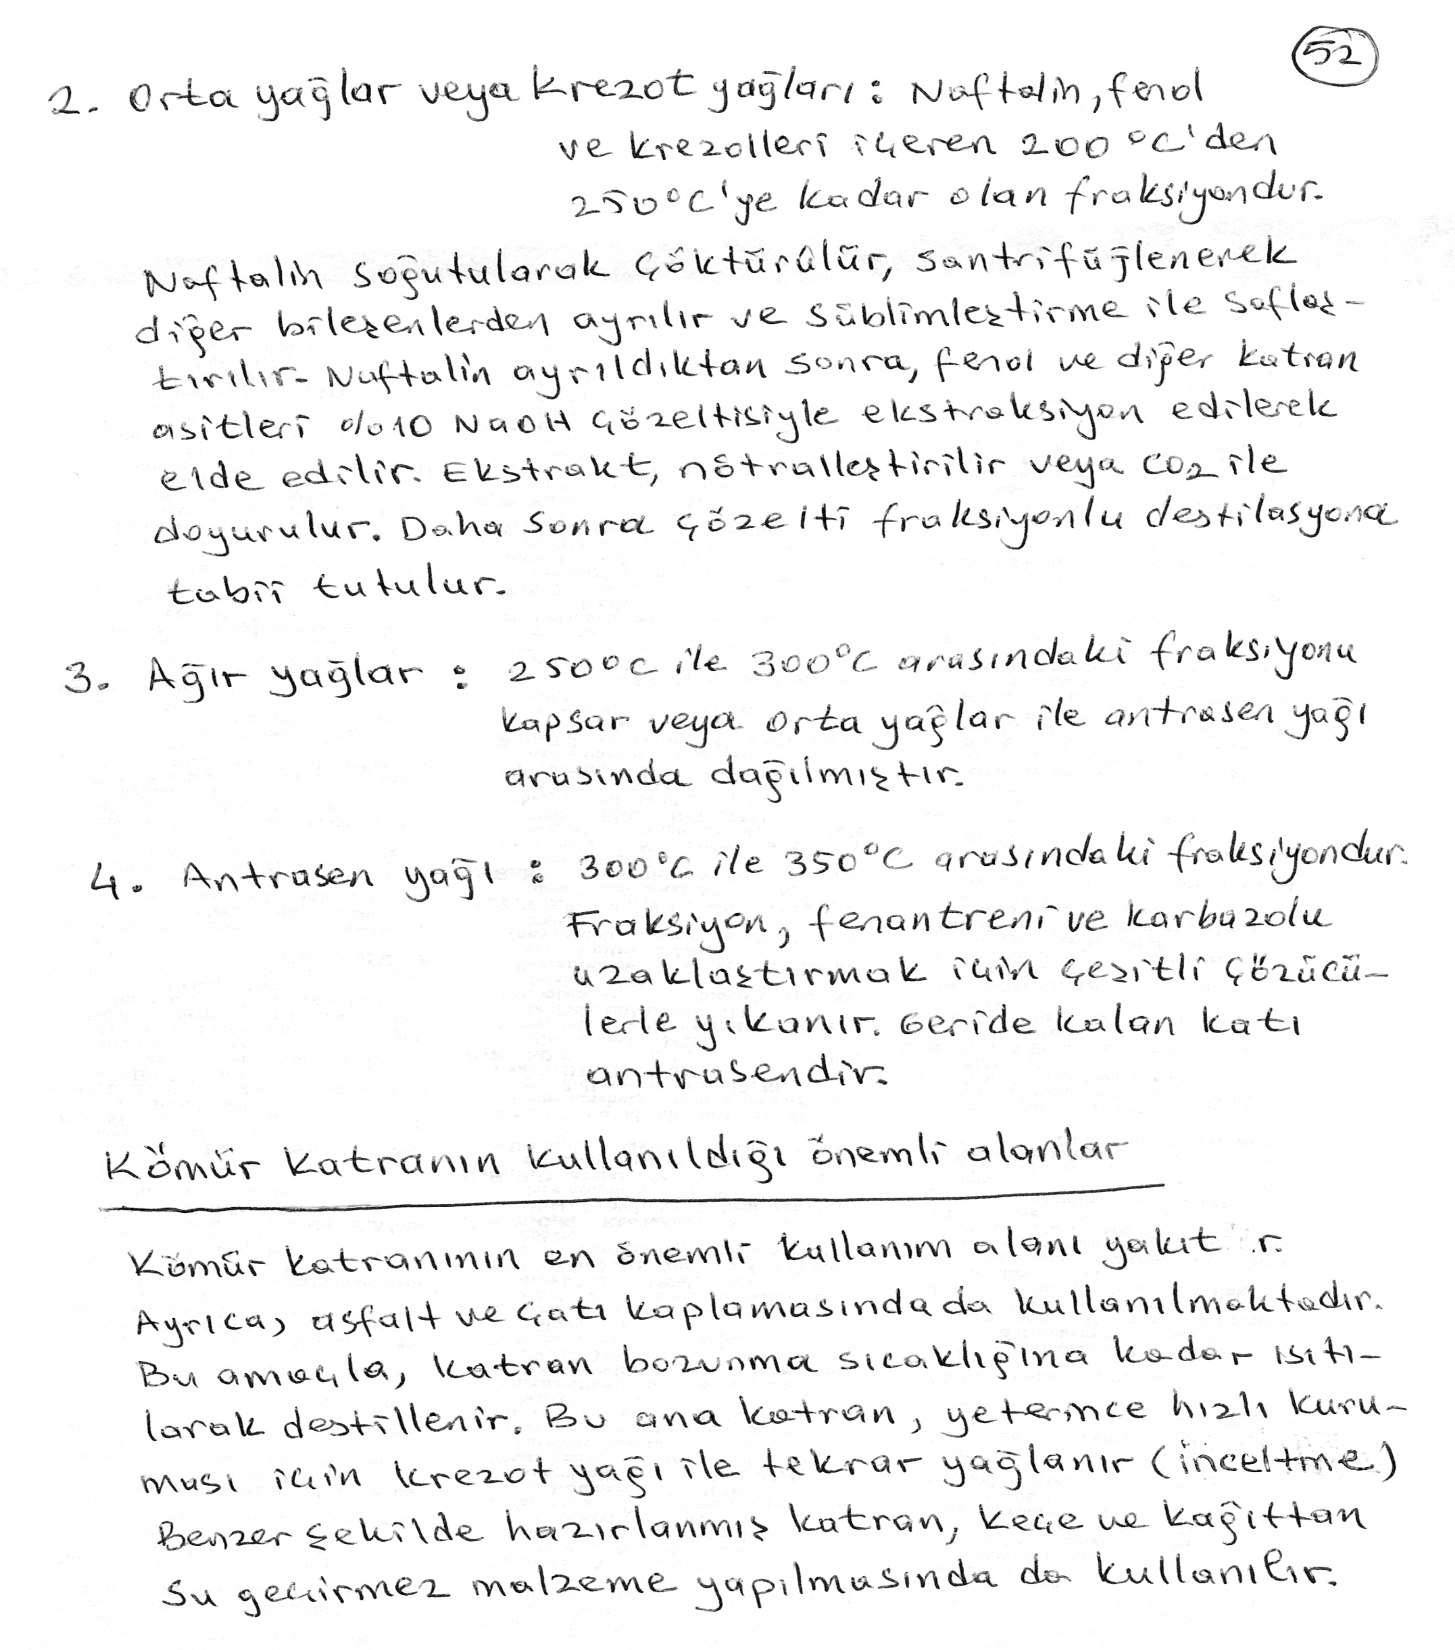 52
2. Orta yağlar veya krezot yağları : Naftalin, fenol
ve krezolleri içeren 200 °C'den
250°C'ye kadar olan fraksiyondur.
Naftalin soğutularak çöktürülür, santrifüjlenerek
diğer bileşenlerden ayrılır ve süblimleştirme ile saflaş-
tırılır. Naftalin ayrıldıktan sonra, fenol ve diğer katran
asitleri %10 NaOH çözeltisiyle ekstraksiyon edilerek
elde edilir. Ekstrakt, nötralleştirilir veya CO2 ile
doyurulur. Daha sonra çözelti fraksiyonlu destilasyona
tabii tutulur.
3. Ağır yağlar : 250°C ile 300°C arasındaki fraksiyonu
kapsar veya orta yağlar ile antrasen yağı
arasında dağılmıştır.
4. Antrasen yağı : 300°C ile 350°C arasındaki fraksiyondur.
Fraksiyon, fenantreni ve karbazolu
uzaklaştırmak için çeşitli çözücü-
lerle yıkanır. Geride kalan katı
antrasendir.
Kömür katranın kullanıldığı önemli alanlar
Kömür katranının en önemli kullanım alanı yakıt r.
Ayrıca, asfalt ve çatı kaplamasında da kullanılmaktadır.
Bu amaçla, katran bozunma sıcaklığına kadar ısıtı-
larak destillenir. Bu ana katran, yeterince hızlı kuru-
ması için krezot yağı ile tekrar yağlanır (inceltme)
Benzer şekilde hazırlanmış katran, keçe ve kağıttan
su geçirmez malzeme yapılmasında da kullanılır.